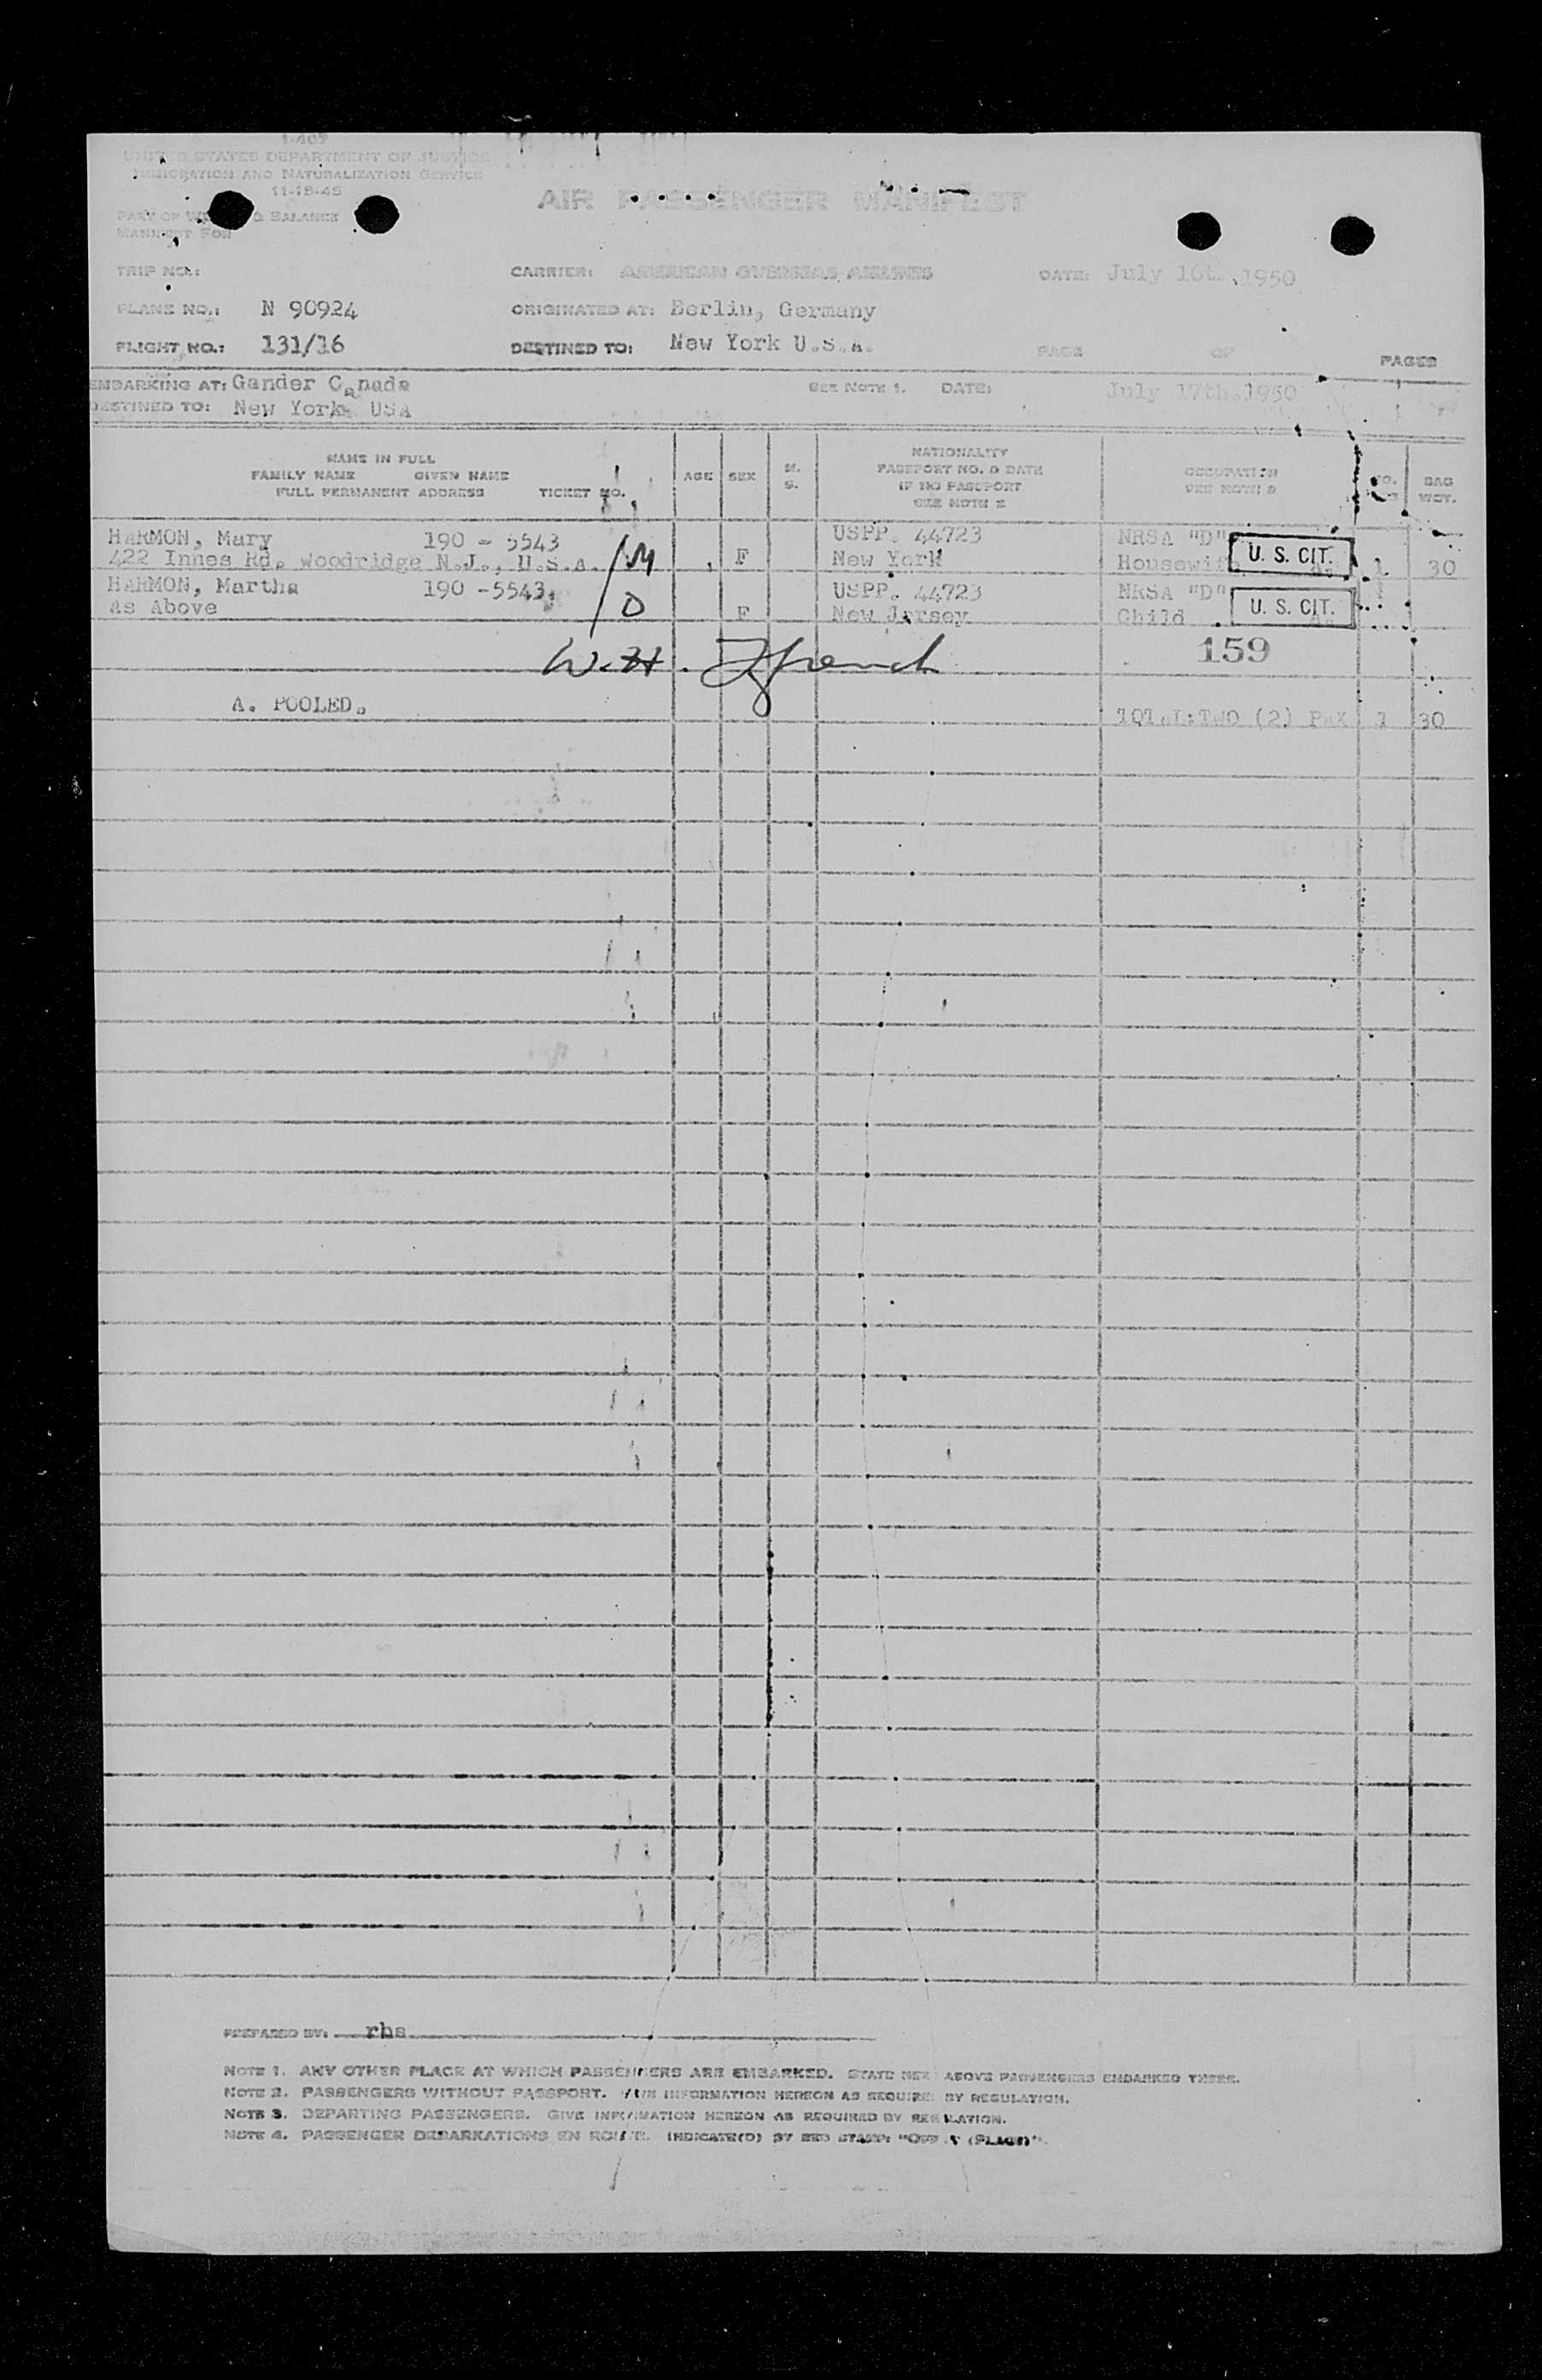 I-469
UNITED STATES DEPARTMENT OF JUSTICE
IMMIGRATION AND NATURALIZATION SERVICE
11-15-45
PART OF & BALANCE
MANIFEST FOR
AIR PASSENGER MANIFEST
TRIP NO.: CARRIER: AMERICAN OVERSEAS AIRLINES DATE: July 16th.,1950
PLANE NO.: N 90924 ORIGINATED AT: Berlin, Germany
FLIGHT NO.: 131/16 DESTINED TO: New York U.S.A. PAGE OF PAGES
EMBARKING AT: Gander Canada SEE NOTE 1. DATE: July 17th.1950
DESTINED TO: New York USA
NAME IN FULL
FAMILY NAME GIVEN NAME
FULL PERMANENT ADDRESS TICKET NO.
AGE SEX M. S.
NATIONALITY
PASSPORT NO. & DATE
IF NO PASSPORT
SEE NOTE 2
OCCUPATION
SEE NOTE 3
BAG
WGT.
HARMON, Mary 190 - 5543 USPP. 44723 NRSA "D"
422 Innes Rd. Woodridge N.J., U.S.A. /M F New York Housewife U. S. CIT. 1 30
HARMON, Martha 190 -5543. USPP. 44723 NRSA "D"
As Above / D F New Jersey Child U. S. CIT. A.
W.H. 159
A. POOLED.
TOTAL:TWO (2) PAX 1 30
PREPARED BY: rhs
NOTE 1. ANY OTHER PLACE AT WHICH PASSENGERS ARE EMBARKED. STATE ABOVE PASSENGERS EMBARKED THERE.
NOTE 2. PASSENGERS WITHOUT PASSPORT. INFORMATION HEREON AS REQUIRED BY REGULATION.
NOTE 3. DEPARTING PASSENGERS. GIVE INFORMATION HEREON AS REQUIRED BY REGULATION.
NOTE 4. PASSENGER DEBARKATIONS EN ROUTE. INDICATE(D) BY RED STAMP: "OFF AT (PLACE)".